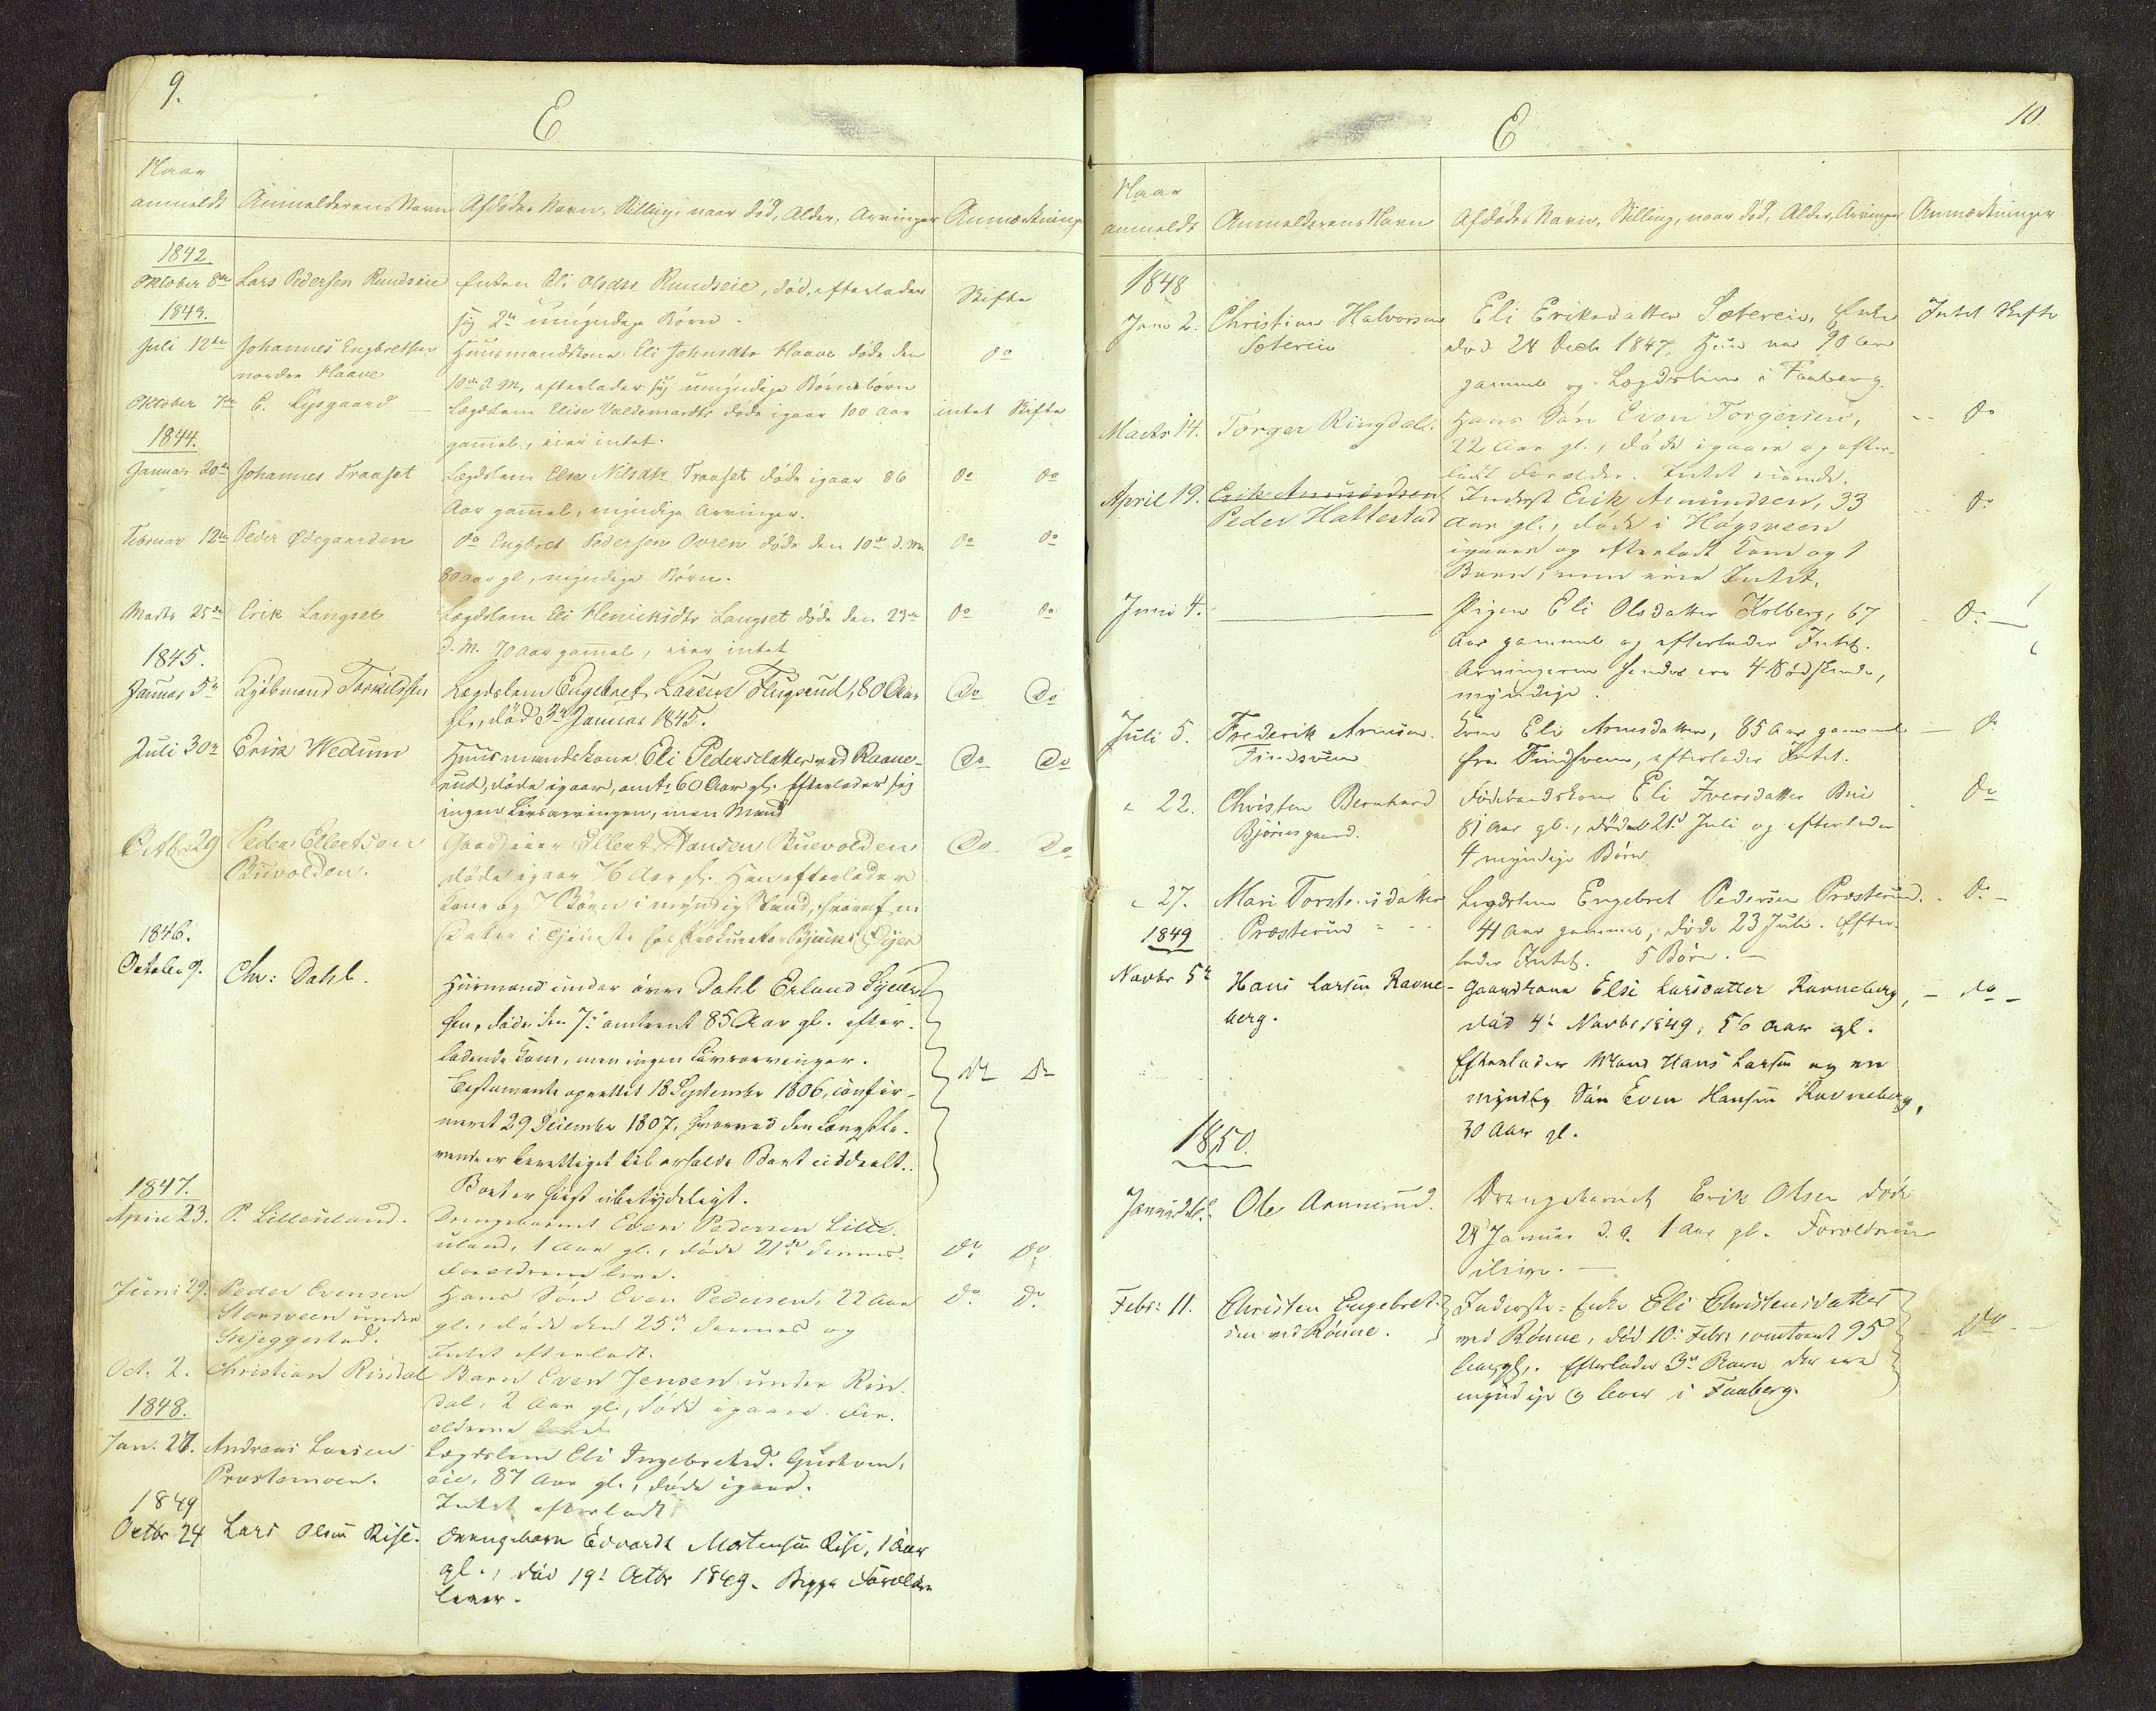 9.
E
Naar
anmeldt Anmelderens Navn Afdødes Navn, Stilling, naar død, Alder, Arvinger Anmærkninger
1842.
Oktober 8de Lars Pedersen Rundseie Enken Eli Olsdtr Rundseie, død, efterlader Skifte
1843. sig 2de umyndige Børn.
Juli 12te Johannes Engbretsen Huusmandskone Eli Johnsdtr Haave døde den do
nordre Haave 10de d. M., efterlader sig umyndige Børnebørn
Oktober 7de C. Lysgaard Lægdslem Elise Valdemarsdtr døde igaar 100 Aar intet Skifte
1844. gammel, eier intet.
Januar 20de Johannes Traaset Lægdslem Else Nilsdtr Traaset døde igaar 86 do do
Aar gammel, myndige Arvinger.
Februar 12te Peder Ødegaarden do Engbret Pedersen Ovren døde den 10de d. M. do do
80 Aar gl, myndige Børn.
Marts 25de Erik Langset Lægdslem Eli Henriksdtr Langset døde den 23de do do
d. M. 70 Aar gammel, eier intet
1845.
Januar 5te Kjøbmand Torkildsen Lægdslem Engebret Larsen Flugsrud, 80 Aar do do
gl., død 3de Januar 1845.
Juli 30te Erik Wedum Huusmandskone Eli Pedersdatter ved Raane- do do
rud, døde igaar, omtr. 60 Aar gl. Efterlader sig
ingen Livsarvinger, men Mand
Octbr 29 Peder Ellertsen Gaardeier Ellert Hansen Buevolden do do
Buevolden. døde igaar 76 Aar gl. Han efterlader
Kone og 7 Børn i myndig Stand, hvoraf en
Datter i Tjeneste hos Prokurator Øyen
1846.
October 9. Chr: Dahl. Huusmand under øvre Dahl Erland Syver-
sen, døde den 7de omtrent 85 Aar gl. efter-
ladende Kone, men ingen Livsarvinger. do do
Testamente oprettet 18 September 1806, confir-
meret 29 December 1807, hvorved den Længstle-
vende er berettiget til at holde Boet udeelt.
Boet er høist ubetydeligt.
1847.
April 23. P. Lilleuland. Drengebarnet Even Pedersen Lille-
uland, 1 Aar gl., døde 21de dennes. do do
Forældrene leve.
Juni 29. Peder Evensen Hans Søn Even Pedersen, 22 Aar do do
Storsveen under gl., døde den 25de dennes og
Skjeggestad. Intet efterladt.
Oct. 2. Christian Rindal Barn Even Jensen under Rin-
1848. dal, 2 Aar gl., døde igaar. For-
ældrene leve
Jan. 27. Andreas Larsen Lægdslem Eli Ingebretsd. 
Prestemoen. eie, 87 Aar gl., døde igaar.
1849 Intet efterladt
Octbr 24 Lars Olsen Rise. Drengebarn Edvardt Mortensen Rise, 1 Aar
gl., død 19d Octbr 1849. Begge Forældre
lever.
10
E
Naar
anmeldt Anmelderens Navn Afdødes Navn, Stilling, naar død, Alder, Arvinger Anmærkninger
1848
Janr 2. Christian Halvorsen Eli Eriksdatter Sætereie, Enke Intet Skifte
Sætereie død 28 Decbr 1847, Hun var 90 Aar
gammel og Lægdslem i Faaberg.
Marts 14. Torger Ringdal. Hans Søn Even Torgersen, do
22 Aar gl., døde igaar og efter-
ladt Forældre. Intet eiende.
April 19. Erik Amundsen Inderst Erik Amundsen, 33 do
Peder Hattestad Aar gl., døde i Høgsveen
igaar og efterladt Kone og 1
Barn, men eier Intet.
Juni 4. Pigen Eli Olsdatter Kolberg, 67 do
Aar gammel og efterlader Intet.
Arvingerne hendes ere 4 Sødskende,
myndige.
Juli 5. Frederik Arnesen Kone Eli Arnesdatter, 85 Aar gammel do
Findsveen fra Findsveen, efterlader Intet.
" 22. Christen Bernhard Føderaadskone Eli Iversdatter Bue do
Bjørnsgaard. 81 Aar gl., døde 21d Juli og efterlader
4 myndige Børn
" 27. Mari Torstensdatter Lægdslem Engebret Pedersen Præsterud. do
1849 Præsterud 41 Aar gammel, døde 23 Juli. Efter-
lader Intet. 5 Børn.
Novbr 5te Hans Larsen Ravne- Gaardkone Else Larsdatter Ravneberg, do
berg. død 4d Novbr 1849, 56 Aar gl.
Efterlader Mand Hans Larsen og en
myndig Søn Even Hansen Ravneberg,
30 Aar gl.
1850.
Ole Aunerud. Drengebarnet Erik Olsen døde
28 Januar d. A. 1 Aar gl. Forældrene
ilive.
Febr: 11. Christen Engebret- Inderste-Enke Eli Christensdatter
sen ved Rønne. ved Rønne, død 10. Febr. omtrent 95 do
Aar gl. Efterlader 3de Børn der ere
myndige og lever i Faaberg.